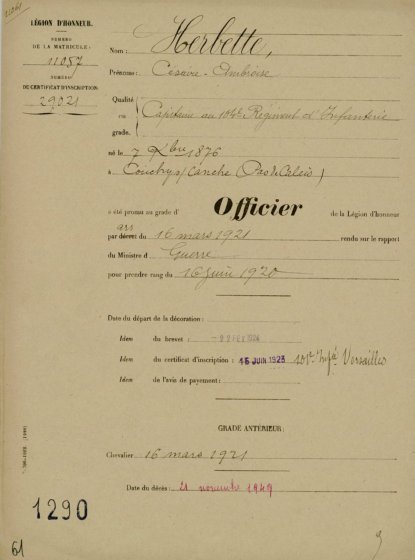 11061
LÉGION D'HONNEUR.
NUMÉRO
DE LA MATRICULE:
11057
NUMÉRO
DE CERTIFICAT D'INSCRIPTION
29021
Nom: Herbette,
Prénoms: Césaire-Ambroise
Qualité
ou
grade.
Capitaine au 104e Régiment d'Infanterie
né le 7 Xbre 1876
à Conchy s/ Canche (Pas de Calais)
a été promu au grade d' Officier de la Légion d'honneur
par décret du 16 mars 1921 rendu sur le rapport
du Ministre d Guerre
pour prendre rang du 16 juin 1920
Date du départ de la décoration:
Idem du brevet:
Idem du certificat d'inscription: 15 JUIN 1923 101e Infie Versailles
Idem de l'avis de payement:
GRADE ANTÉRIEUR:
Chevalier 16 mars 1921
Date du décès: 21 novembre 1949
1290
61